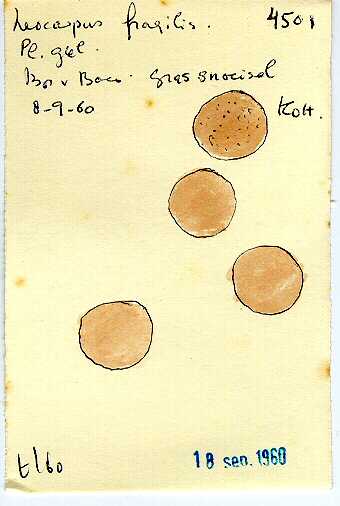 Leocarpus fragilis. 4501
Pl. gel.
Bos v Baco. Gras snoeisel
8-9-60 KOH.
t/60
18 sep. 1960